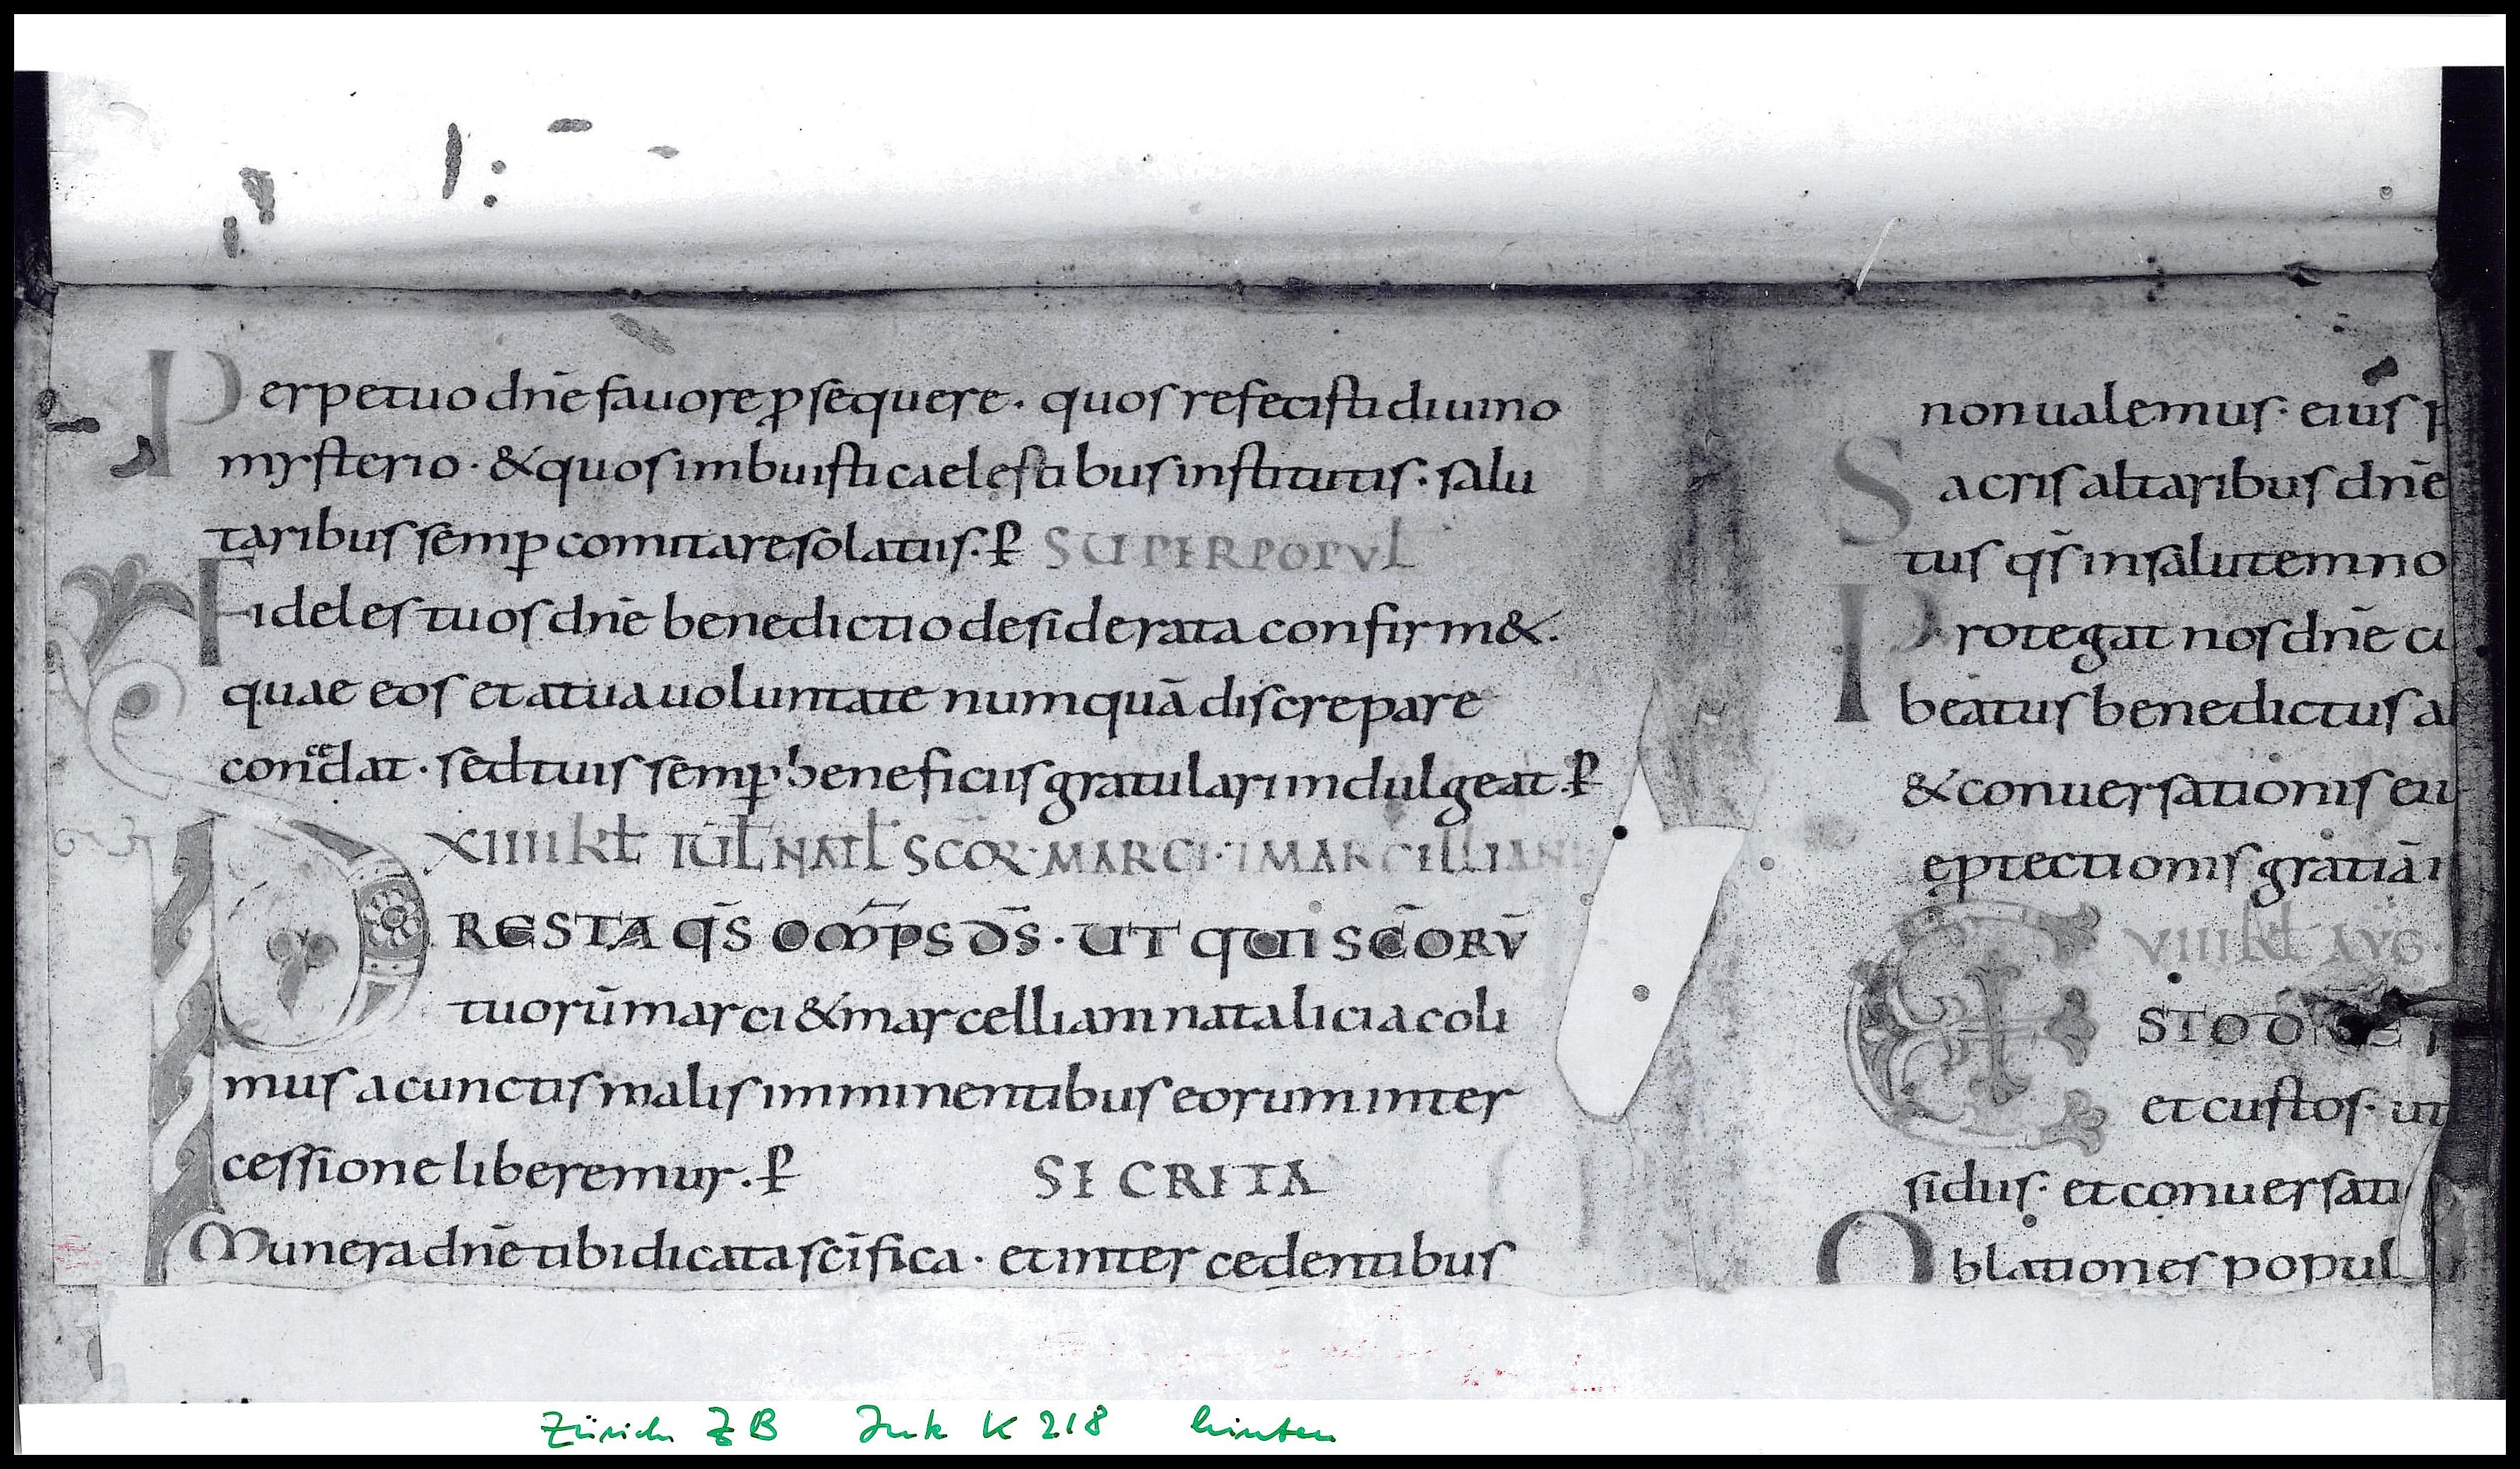 Perpetuo dn̄e fauore ꝓsequere · quos refecisti diuino
mysterio · & quos imbuisti caelestibus institutis · salu
taribus semꝑ comitare solatiis · ꝑ SUPER POPVL
Fideles tuos dn̄e benedictio desiderata confirm& ·
quae eos et a tua uoluntate numquā discrepare
concedat · sed tuis semꝑ beneficiis gratulari indulgeat · ꝑ
XIIII kƚ IUƚ NATƚ SCOꝜ · MARCI · 7 MARCELLIAN
PRESTA QS̄ OMP̄S DS̄ · UT QUI SC̄ORV̄
tuorū marci & marcelliani natalicia coli
mus a cunctis malis imminentibus eorum inter
cessione liberemur · ꝑ SECRETA
Munera dn̄e tibi dicata sc̄ifica · et intercedentibus
non ualemus · eius p
Sacris altaribus dn̄e
tus qs̄ in salutem no
Protegat nos dn̄e cu
beatus benedictus ab
& conuersationis eiu
e ꝓtectionis gratiā
VIIII kƚ AVG ·
ESTO DNE
et custos · ut
sidiis · et conuersati
Oblationes popul
Zürich ZB Ink K 218 hinten